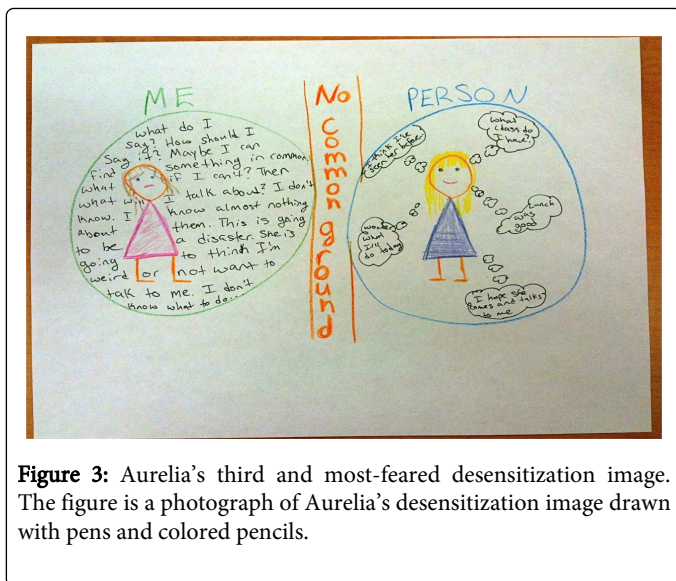 ME
what do I
say? How should I
say it? Maybe I can
find something in common,
what if I can't? Then
what will I talk about? I don't
know. I know almost nothing
about them. This is going
to be a disaster. She is
going to think I'm
weird or not want to
talk to me. I don't
know what to do...
No
common
ground
PERSON
I think I've
seen her before
What
class do
I have?
I wonder
what
I'll
do today
Lunch
was
good
I hope she
comes and talks
to me
Figure 3: Aurelia's third and most-feared desensitization image.
The figure is a photograph of Aurelia's desensitization image drawn
with pens and colored pencils.